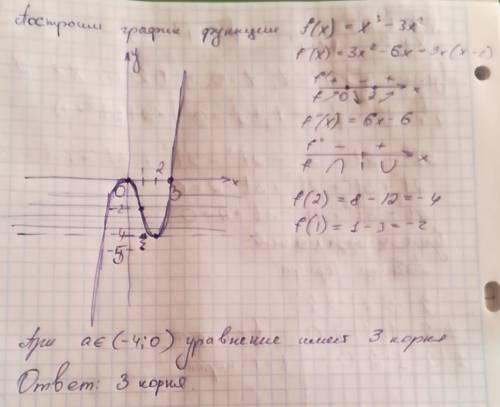 Построим график функции f(x) = x³ - 3x²
f'(x) = 3x² - 6x = 3x(x-2)
f' + - +
f 0 2 x
f''(x) = 6x - 6
f'' - +
f 1 x
f(2) = 8 - 12 = -4
f(1) = 1 - 3 = -2
y
1 2
0 3 x
-2
-4
-5
При a∈(-4;0) уравнение имеет 3 корня
Ответ: 3 корня